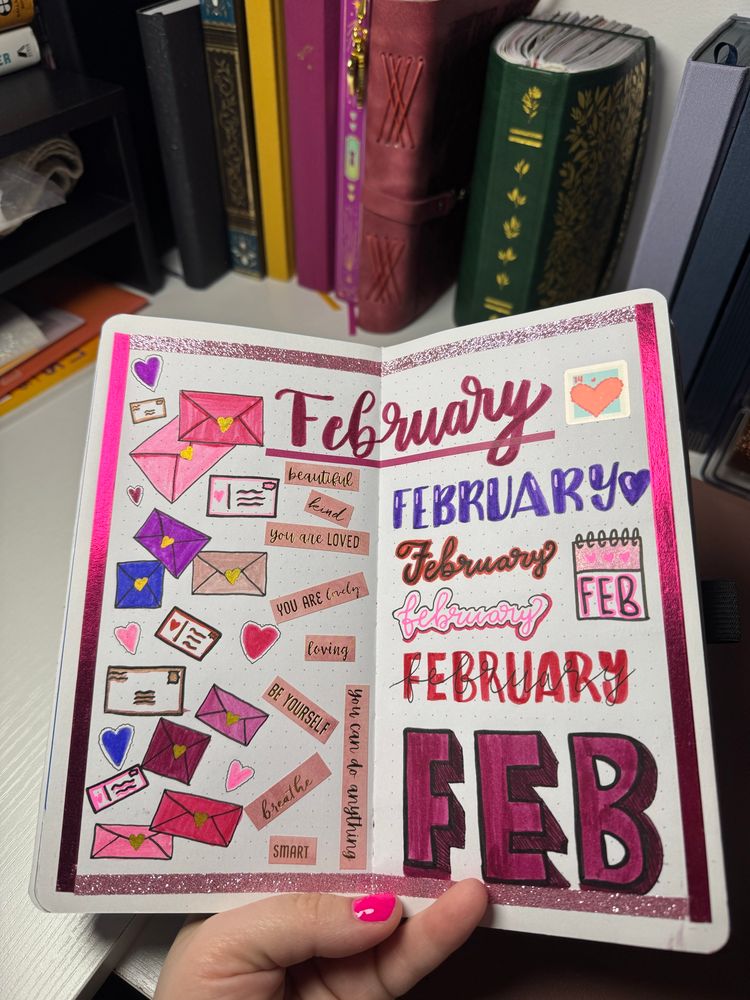 February
beautiful
kind
you are LOVED
YOU ARE lovely
loving
BE YOURSELF
you can do anything
breathe
SMART
14
FEBRUARY
February
FEB
february
FEBRUARY
february
FEB